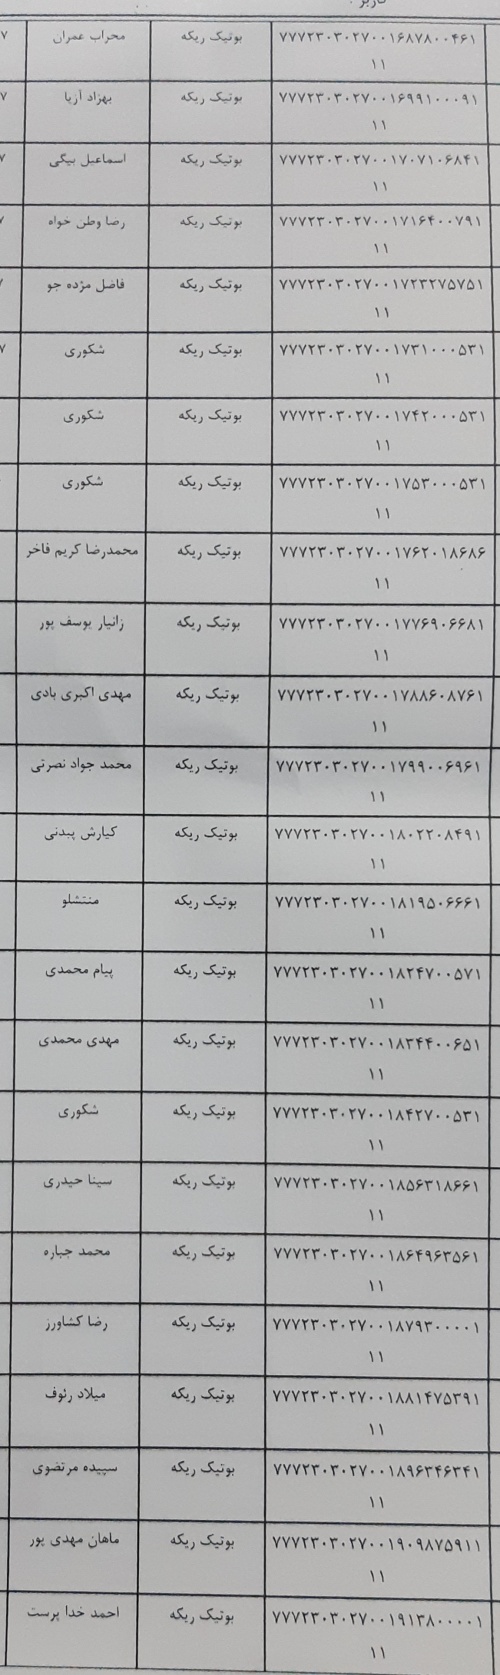 ۷۷۷۲۳۰۳۰۲۷۰۰۱۶۸۷۸۰۰۴۶۱ بوتیک ریکه محراب عمران
۱۱
۷۷۷۲۳۰۳۰۲۷۰۰۱۶۹۹۱۰۰۰۹۱ بوتیک ریکه بهزاد آریا
۱۱
۷۷۷۲۳۰۳۰۲۷۰۰۱۷۰۷۱۰۶۸۴۱ بوتیک ریکه اسماعیل بیگی
۱۱
۷۷۷۲۳۰۳۰۲۷۰۰۱۷۱۶۴۰۰۷۹۱ بوتیک ریکه رضا وطن خواه
۱۱
۷۷۷۲۳۰۳۰۲۷۰۰۱۷۲۳۲۷۵۷۵۱ بوتیک ریکه فاضل مژده جو
۱۱
۷۷۷۲۳۰۳۰۲۷۰۰۱۷۳۱۰۰۰۵۳۱ بوتیک ریکه شکوری
۱۱
۷۷۷۲۳۰۳۰۲۷۰۰۱۷۴۲۰۰۰۵۳۱ بوتیک ریکه شکوری
۱۱
۷۷۷۲۳۰۳۰۲۷۰۰۱۷۵۳۰۰۰۵۳۱ بوتیک ریکه شکوری
۱۱
۷۷۷۲۳۰۳۰۲۷۰۰۱۷۶۲۰۱۸۶۸۶ بوتیک ریکه محمدرضا کریم فاخر
۱۱
۷۷۷۲۳۰۳۰۲۷۰۰۱۷۷۶۹۰۶۶۸۱ بوتیک ریکه زانیار یوسف پور
۱۱
۷۷۷۲۳۰۳۰۲۷۰۰۱۷۸۸۶۰۸۷۶۱ بوتیک ریکه مهدی اکبری بادی
۱۱
۷۷۷۲۳۰۳۰۲۷۰۰۱۷۹۹۰۰۶۹۶۱ بوتیک ریکه محمد جواد نصرتی
۱۱
۷۷۷۲۳۰۳۰۲۷۰۰۱۸۰۲۲۰۸۴۹۱ بوتیک ریکه کیارش پبدنی
۱۱
۷۷۷۲۳۰۳۰۲۷۰۰۱۸۱۹۵۰۶۶۶۱ بوتیک ریکه منتشلو
۱۱
۷۷۷۲۳۰۳۰۲۷۰۰۱۸۲۴۷۰۰۵۷۱ بوتیک ریکه پیام محمدی
۱۱
۷۷۷۲۳۰۳۰۲۷۰۰۱۸۳۴۴۰۰۶۵۱ بوتیک ریکه مهدی محمدی
۱۱
۷۷۷۲۳۰۳۰۲۷۰۰۱۸۴۲۷۰۰۵۳۱ بوتیک ریکه شکوری
۱۱
۷۷۷۲۳۰۳۰۲۷۰۰۱۸۵۶۳۱۸۶۶۱ بوتیک ریکه سینا حیدری
۱۱
۷۷۷۲۳۰۳۰۲۷۰۰۱۸۶۴۹۶۳۵۶۱ بوتیک ریکه محمد جباره
۱۱
۷۷۷۲۳۰۳۰۲۷۰۰۱۸۷۹۳۰۰۰۰۱ بوتیک ریکه رضا کشاورز
۱۱
۷۷۷۲۳۰۳۰۲۷۰۰۱۸۸۱۴۷۵۳۹۱ بوتیک ریکه میلاد رئوف
۱۱
۷۷۷۲۳۰۳۰۲۷۰۰۱۸۹۶۳۴۶۳۴۱ بوتیک ریکه سپیده مرتضوی
۱۱
۷۷۷۲۳۰۳۰۲۷۰۰۱۹۰۹۸۷۵۹۱۱ بوتیک ریکه ماهان مهدی پور
۱۱
۷۷۷۲۳۰۳۰۲۷۰۰۱۹۱۳۸۰۰۰۰۱ بوتیک ریکه احمد خدا پرست
۱۱